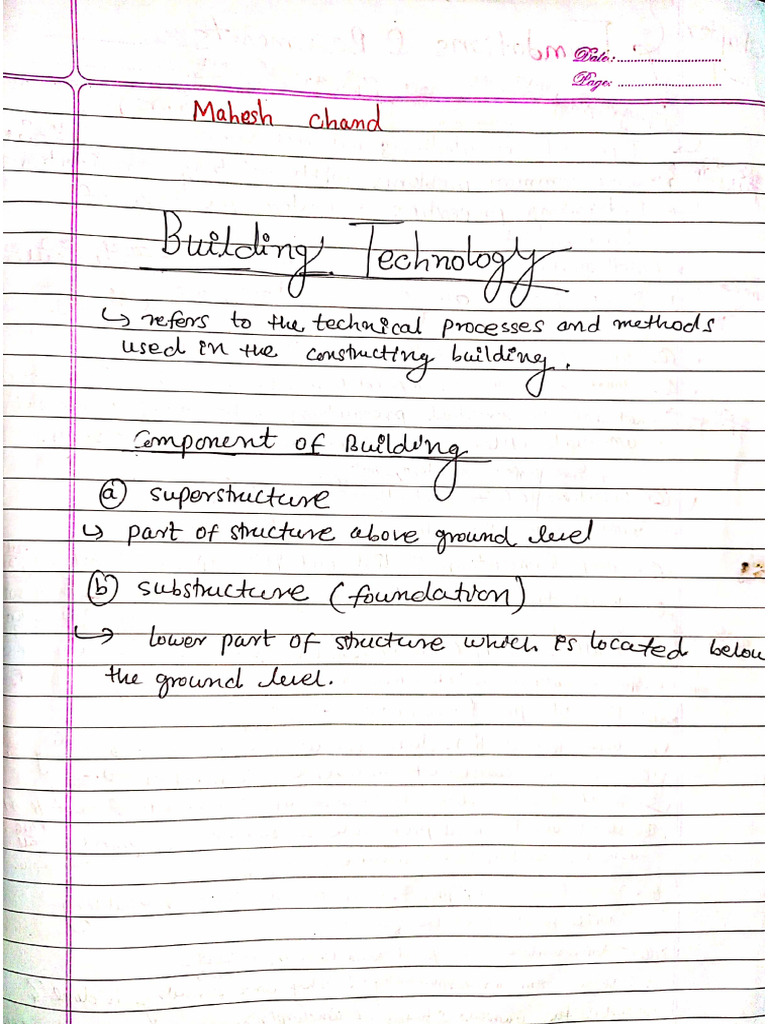 Date: ............................
Page: ............................
Mahesh Chand
Building Technology
↳ refers to the technical processes and methods
used in the constructing building.
Component of Building
ⓐ superstructure
↳ part of structure above ground level
ⓑ substructure (foundation)
↳ lower part of structure which is located below
the ground level.